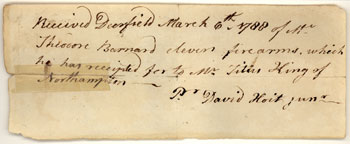 Received Deerfield March 6th 1788 of Mr
Theodore Barnard eleven firearms, which
he has receipted for to Mr Titus King of
Northampton
Pr David Hoit junr